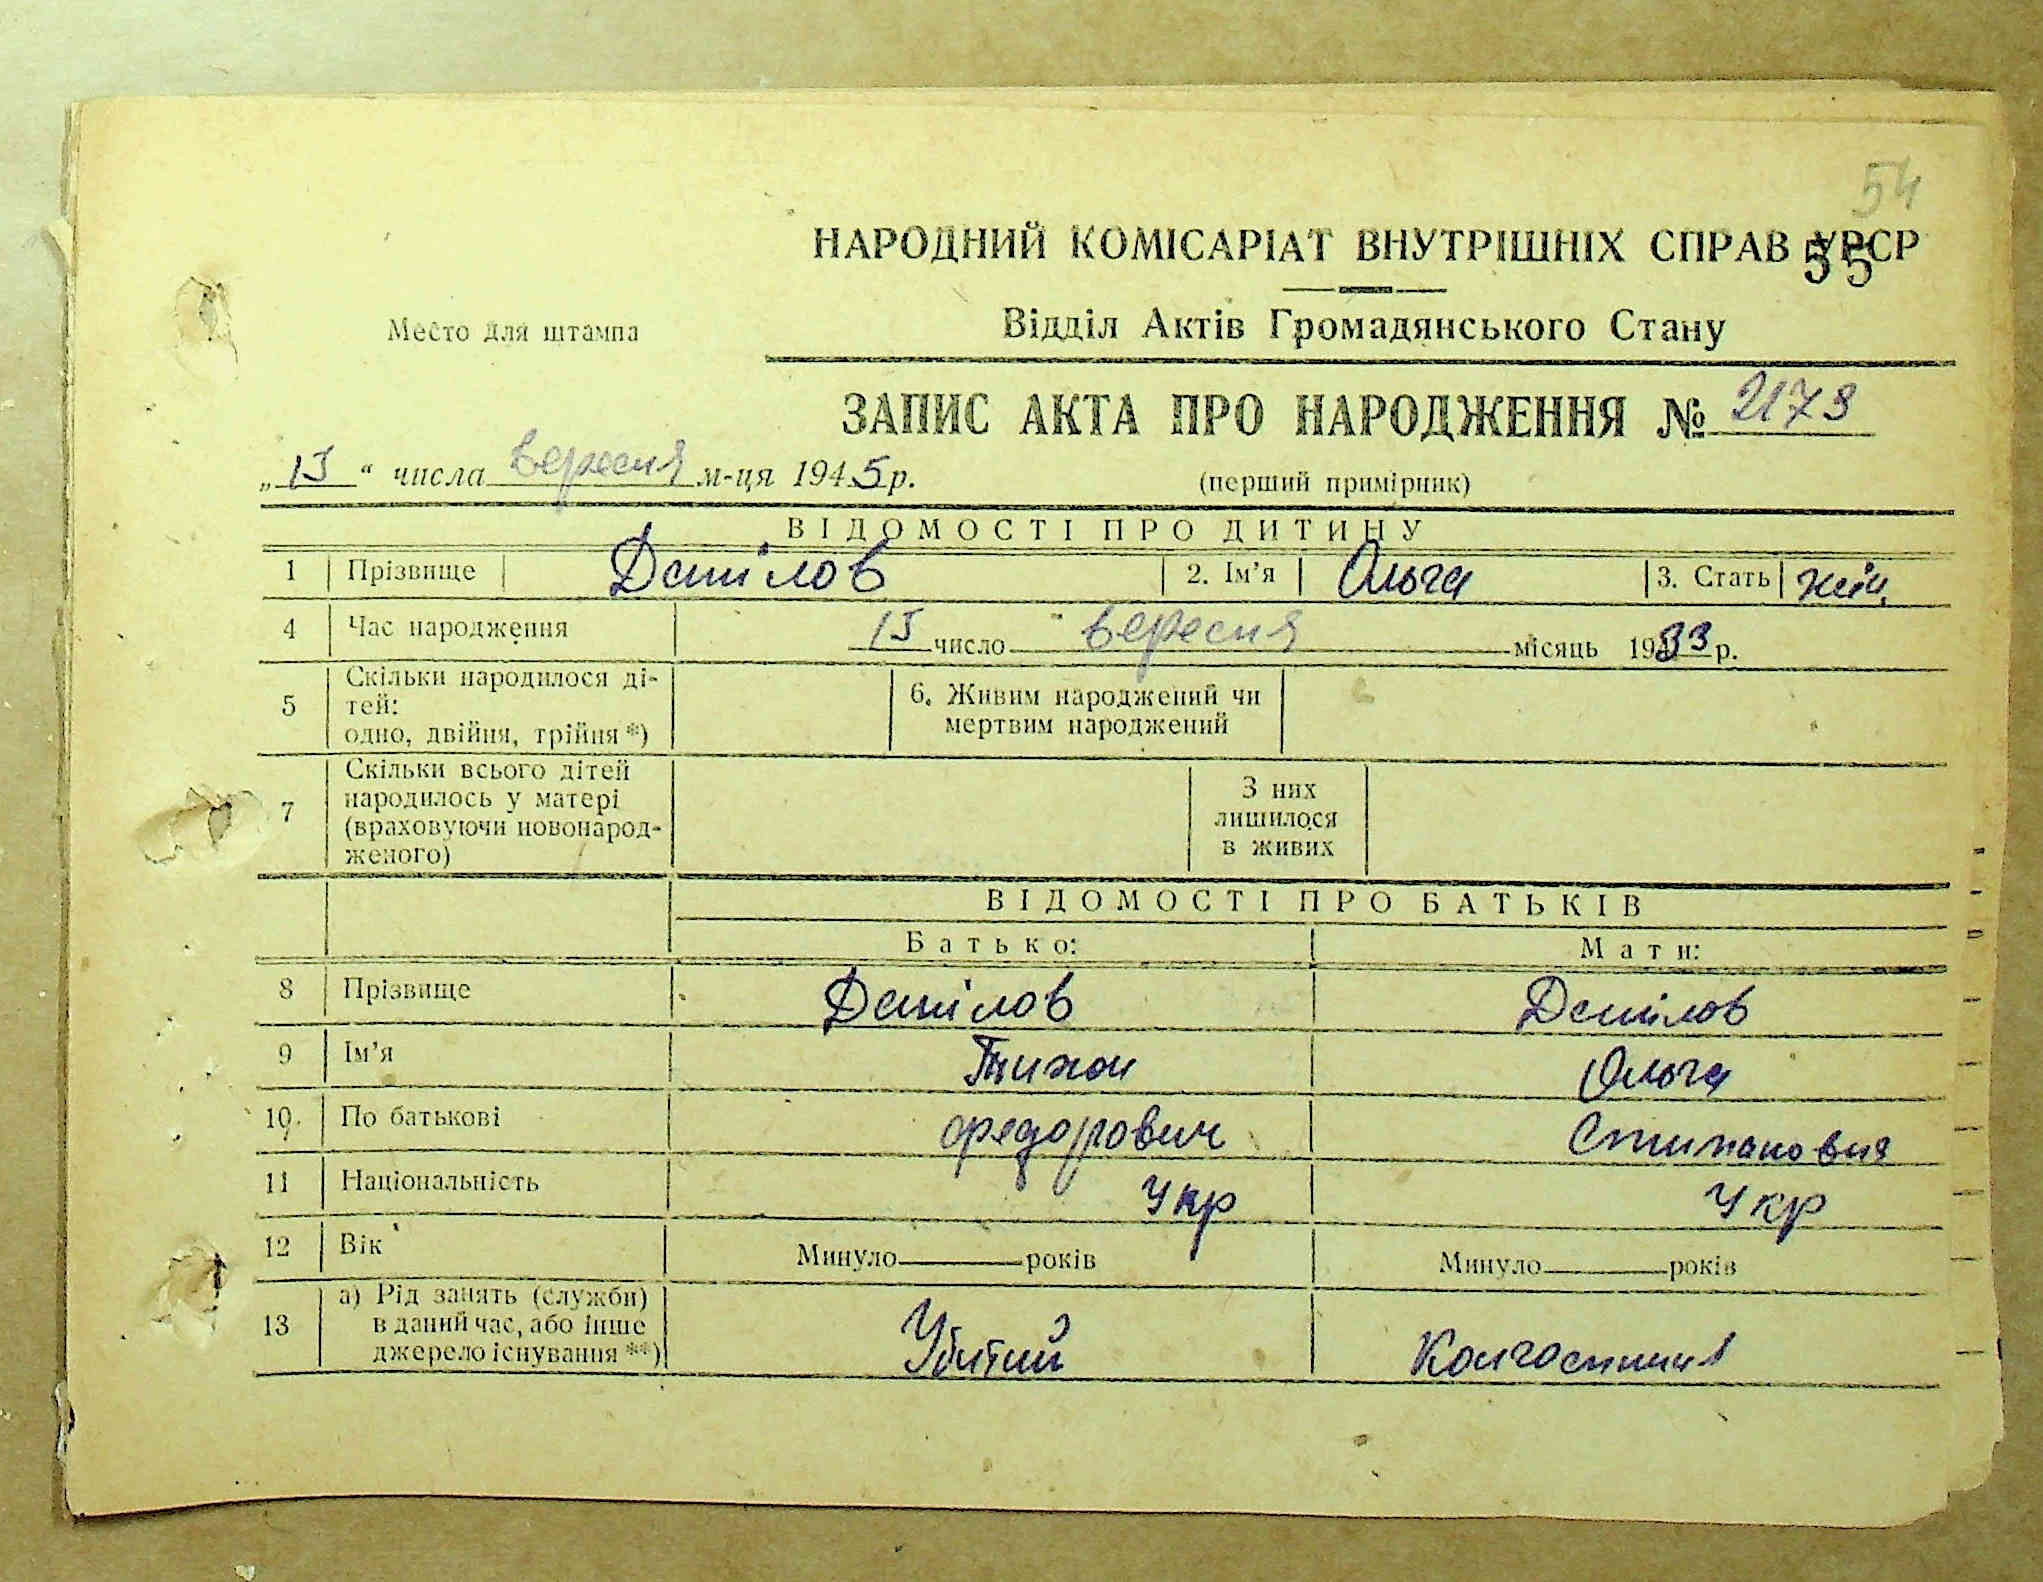 54
НАРОДНИЙ КОМІСАРІАТ ВНУТРІШНІХ СПРАВ УРСР
55
Место для штампа
Відділ Актів Громадянського Стану
ЗАПИС АКТА ПРО НАРОДЖЕННЯ № 2173
„15“ числа вересня м-ця 1945 р. (перший примірник)
ВІДОМОСТІ ПРО ДИТИНУ
1 Прізвище Данілов 2. Ім'я Ольга 3. Стать жін.
4 Час народження 15 число вересня місяць 1933 р.
5 Скільки народилося ді-
тей:
одно, двійня, трійня *)
6. Живим народжений чи
мертвим народжений
7 Скільки всього дітей
народилось у матері
(враховуючи новонарод-
женого)
З них
лишилося
в живих
ВІДОМОСТІ ПРО БАТЬКІВ
Батько: Мати:
8 Прізвище Данілов Данілов
9 Ім'я Тихон Ольга
10 По батькові Федорович Стипановня
11 Національність Укр Укр
12 Вік Минуло років Минуло років
13 а) Рід занять (служби)
в даний час, або інше
джерело існування **)
Убитий Колгоспниця